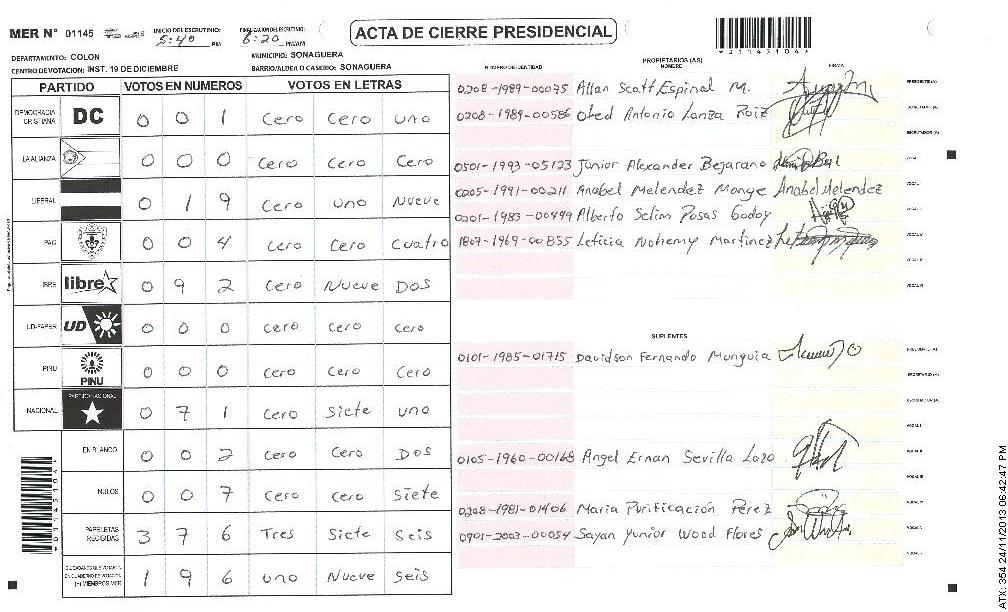 MER N° 01145 INICIO DEL ESCRUTINIO: 5:40 PM 6:20 PM/AM
ACTA DE CIERRE PRESIDENCIAL
DEPARTAMENTO: COLON MUNICIPIO: SONAGUERA
CENTRO DE VOTACION: INST. 19 DE DICIEMBRE BARRIO/ALDEA O CASERIO: SONAGUERA
PARTIDO VOTOS EN NUMEROS VOTOS EN LETRAS
DEMOCRACIA CRISTIANA DC 0 0 1 Cero Cero uno
LA ALIANZA 0 0 0 Cero Cero Cero
LIBERAL 0 1 9 Cero uno Nueve
PAC 0 0 4 Cero Cero Cuatro
libre 0 9 2 Cero Nueve Dos
UD-FAPER UD 0 0 0 Cero Cero Cero
PINU PINU 0 0 0 Cero Cero Cero
NACIONAL PARTIDO NACIONAL 0 7 1 Cero Siete uno
EN BLANCO 0 0 2 Cero Cero Dos
NULOS 0 0 7 Cero Cero Siete
PAPELETAS RECIBIDAS 3 7 6 Tres Siete Seis
1 9 6 uno Nueve Seis
NUMERO DE IDENTIDAD PROPIETARIOS (AS) NOMBRE FIRMA
0208-1989-00075 Allan Scatt Espinal M.
0208-1989-00586 Obed Antonio Lanza Ruiz
0501-1993-05123 Junior Alexander Bejarano
0205-1991-00211 Anabel Melendez Monge Anabel Melendez
0201-1983-00499 Alberto Selim Posas Godoy
1807-1969-00855 Leticia Nohemy Martinez
SUPLENTES
0101-1985-01715 Davidson Fernando Munguia
0105-1960-00168 Angel Ernan Sevilla Lozo
0208-1981-01406 Maria Purificación Pérez
0901-2003-00054 Sayan Yunior Wood Flores
ATX: 354 24/11/2013 06:42:47 PM